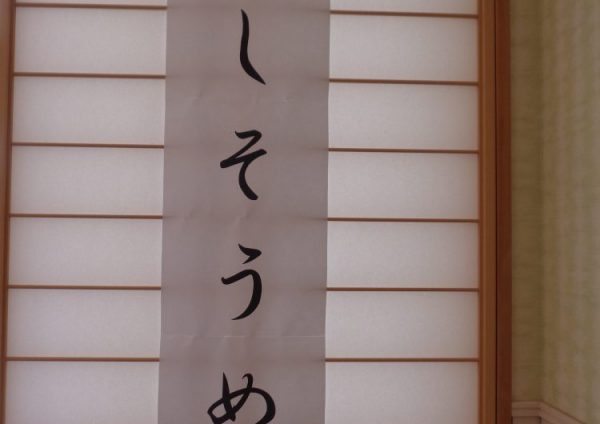 しそうめ